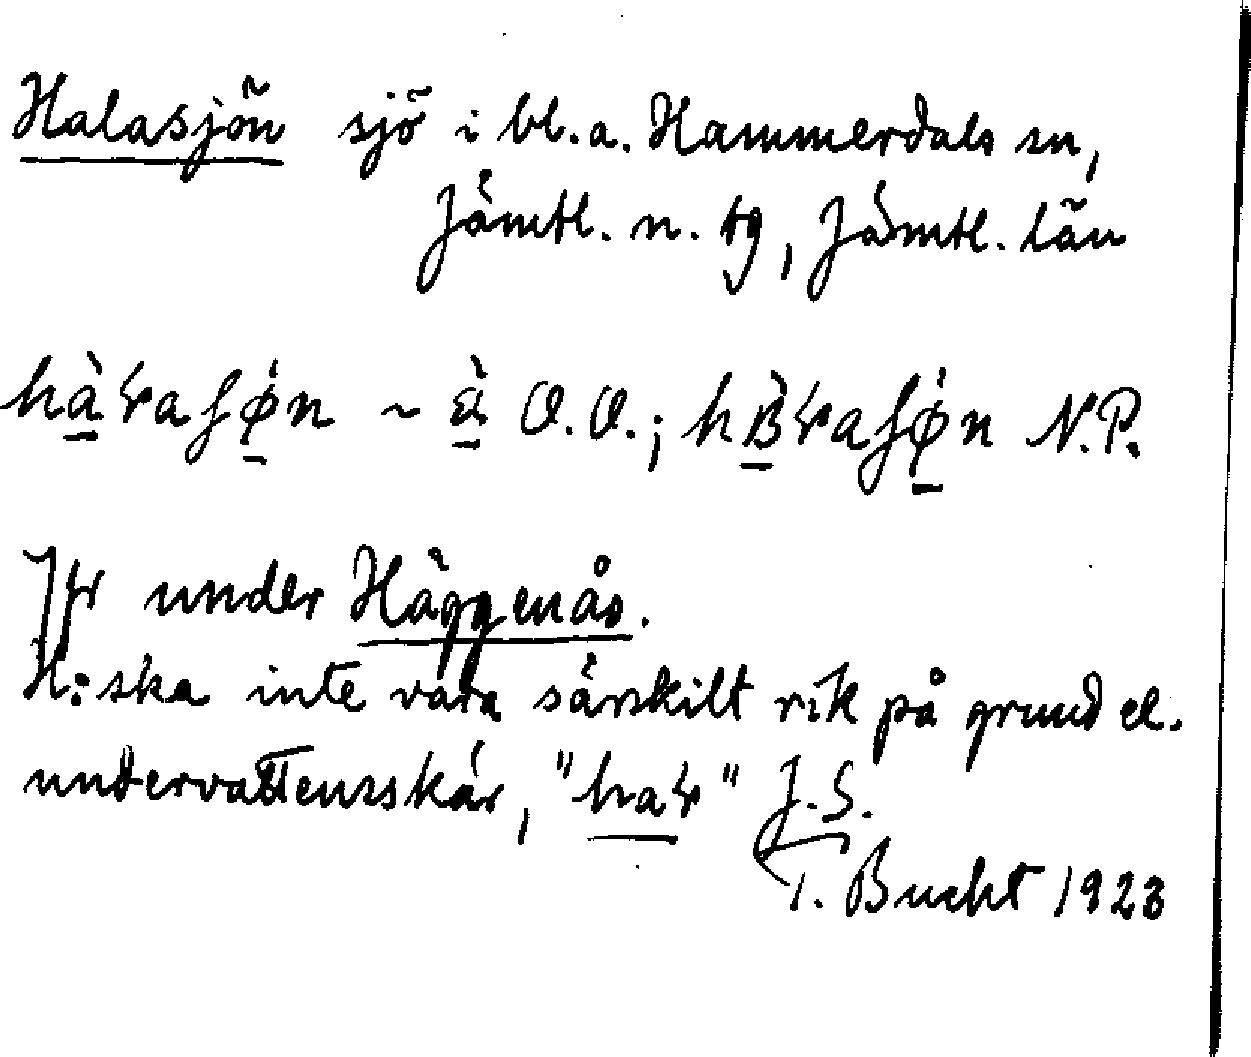 Halasjön sjö i bl.a. Hammerdals sn,
Jämtl. n. tg, Jämtl. län
O.O.; N.P.
Jfr under Häggenås.
H: ska inte vara särskilt rik på grund el.
undervattensskär, J.S.
T. Bucht 1923